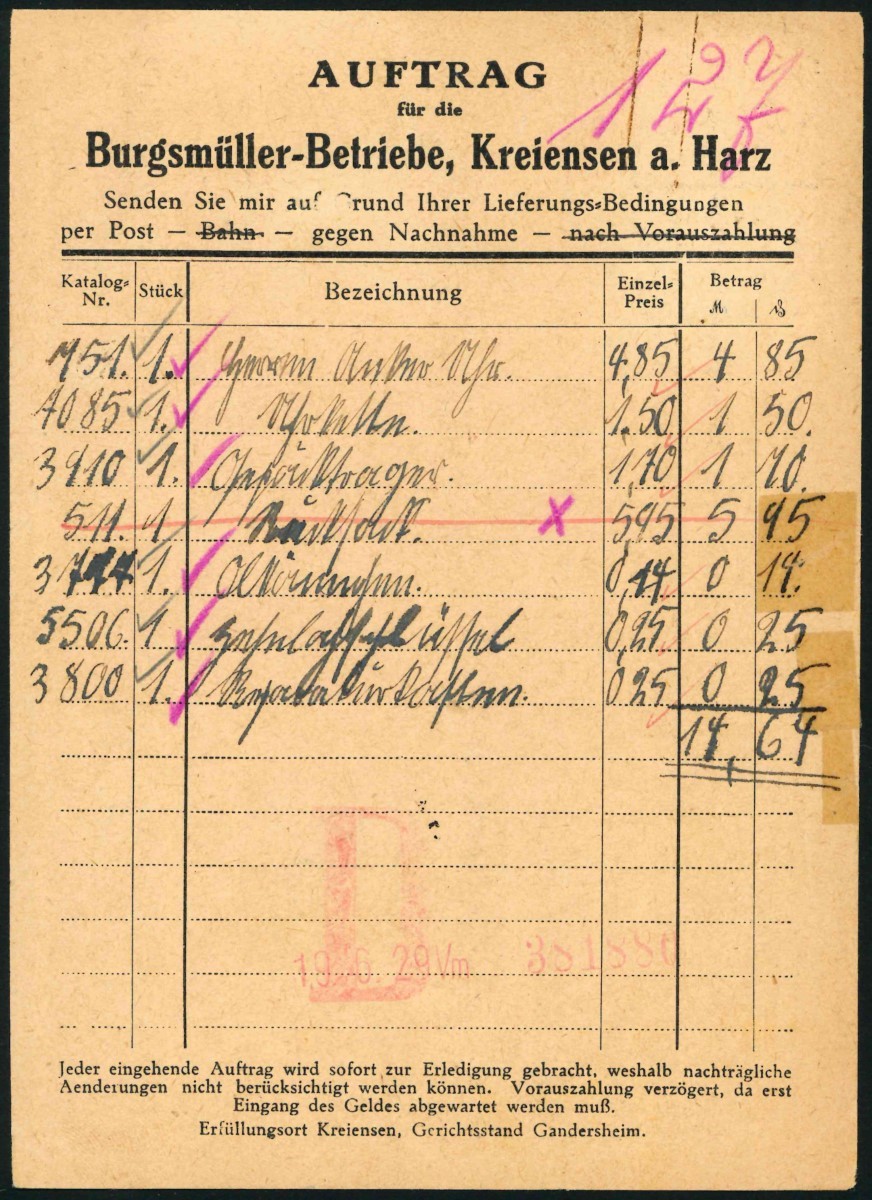 AUFTRAG
für die
Burgsmüller-Betriebe, Kreiensen a. Harz
Senden Sie mir auf Grund Ihrer Lieferungs-Bedingungen
per Post — Bahn — gegen Nachnahme — nach Vorauszahlung
Katalog-Nr. Stück Bezeichnung Einzel-Preis Betrag
M ₰
751. 1. Herren Anker Uhr. 4,85 4 85
1. Uhrkette. 1.50 1 50.
3910 1. Gepäckträger. 1,70 1 70.
511. 1 Rucksack. X 5,95 5 95
1. Ölkännchen. 0,14 0 14.
5506. 1 0,25 0 25
3800 1. Reparaturkasten. 0,25 0 25
14,64
D
19.6.29 Vm
Jeder eingehende Auftrag wird sofort zur Erledigung gebracht, weshalb nachträgliche
Aenderungen nicht berücksichtigt werden können. Vorauszahlung verzögert, da erst
Eingang des Geldes abgewartet werden muß.
Erfüllungsort Kreiensen, Gerichtsstand Gandersheim.